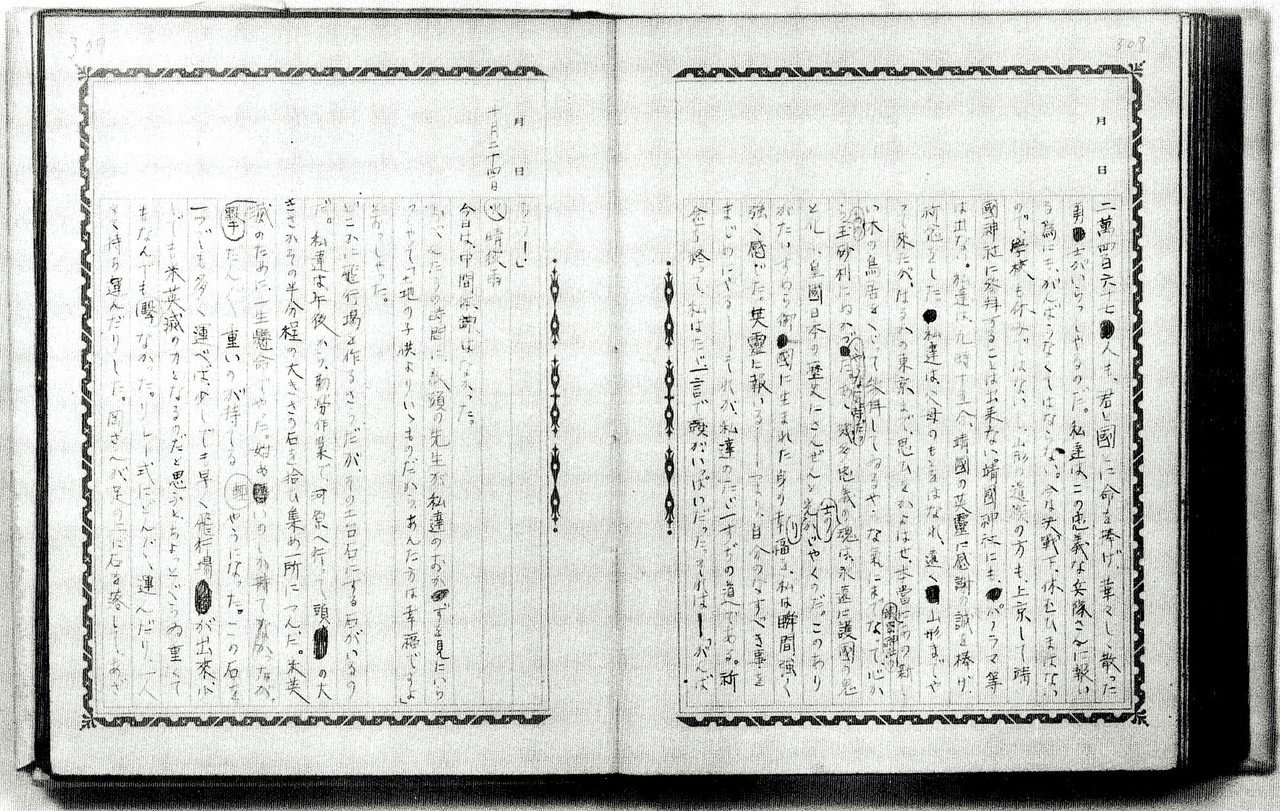 308
月 日
二萬四百六十七人も、君と國とに命を捧げ、華々しく散った
勇士がいらっしゃるのだ。私達は、この忠義な兵隊さんに報い
る為にも、がんばらなくてはならない。今は決戦下、休む
ので、學校も
國神社に参拝することは出來ない。靖國神社にも、パノラマ等
は出ない。私達は、九時十五分、靖國の英靈に感謝の誠を捧げ、
祈念をした。私達は、父母のもとをはなれ、遠く山形までや
って來たが、はるかの東京まで、思ひをかよはせ、本當にあの新し
い木の鳥居をくぐって参拝してゐるやうな氣にまでなって、心か
靖國神社の
る玉砂利にぬかづいた
やうな氣持だった
忠義の魂は、永遠に護國の鬼
と化し、皇國日本の歴史にさんぜんと光りかゞやくのだ。このあり
がたいすめら御國に生まれた身の幸福を、私は瞬間強く
強く感じた。英靈に報いる――つまり自分のなすべき事を
まじめにやる――それが、私達のたゞ一すぢの道へである。祈
念を終って、私はたゞ一言で頭がいっぱいだった。それは――「がんば
309
月 日
らう!」
十月二十四日 火 晴後雨
今日は、中間體操はなかった。
時間に
頭の先生が私達のお
を見にいら
って、「土地の子供よりいゝものだから、あんた方は幸福ですよ」
とおっしゃった。
どこかに飛行場を作るさうだが、その土台石にする石がいるの
だ。私達は午後から、勤勞作業で河原へ行って、頭の大
きさからその半分程の大きさの石を拾ひ集め一所につんだ。米英
滅のために、一生懸命でやった。始め輕いのしか持てなかったが、
撃 だんだん重いのが持てるやうになった。この石を
一つでも多く運べば、少しでも早く飛行場が出來、少
しでも米英撃滅の力となるのだと思ふと、ちょっとぐらゐ重くて
もなんでもなかった。リレー式にどんどん運んだり、一人
で持ち運んだりした。岡さんが足の上に石を落して、あざ